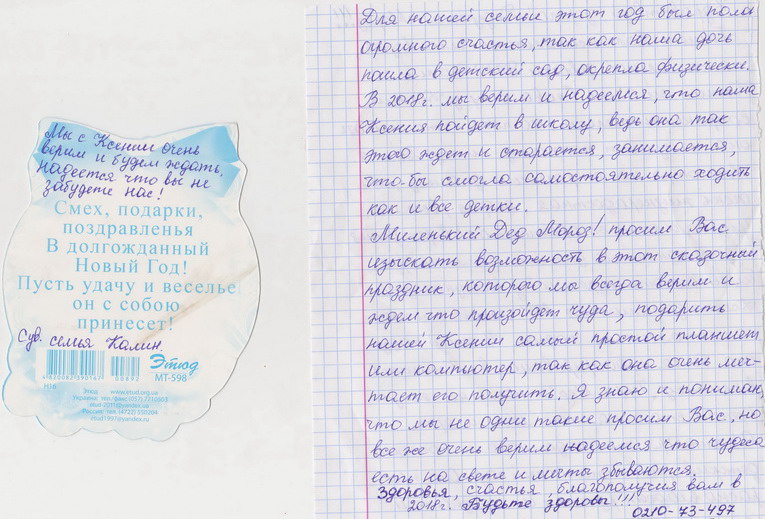 Мы с Ксенией очень
верим и будем ждать,
надеется что вы не
забудете нас!
Смех, подарки,
поздравленья
В долгожданный
Новый Год!
Пусть удачу и веселье
он с собою
принесет!
С ув. семья Калин.
Этюд
МТ-598
4820082590167
00692
Н16
Этюд www.etud.org.ua
Украина: тел./факс (057) 7210303
etud-2011@yandex.ua
Россия: тел. (4722) 550204
etud1997@yandex.ru
Для нашей семьи этот год был полон
огромного счастья, так как наша дочь
пошла в детский сад, окрепла физически.
В 2018г. мы верим и надеемся, что наша
Ксения пойдет в школу, ведь она так
этого ждет и старается, занимается,
что-бы смогла самостоятельно ходить
как и все детки.
Миленький Дед Мороз! просим Вас
изыскать возможность в этот сказочный
праздник, которого мы всегда верим и
ждем что произойдет чуда, подарить
нашей Ксении самый простой планшет
или компьютер, так как она очень меч-
тает его получить. Я знаю и понимаю,
что мы не одни такие просим Вас, но
все же очень верим надеемся что чудеса
есть на свете и мечты збываются.
Здоровья, счастья, благополучия вам в
2018г. Будьте здоровы!!!
0210-73-497